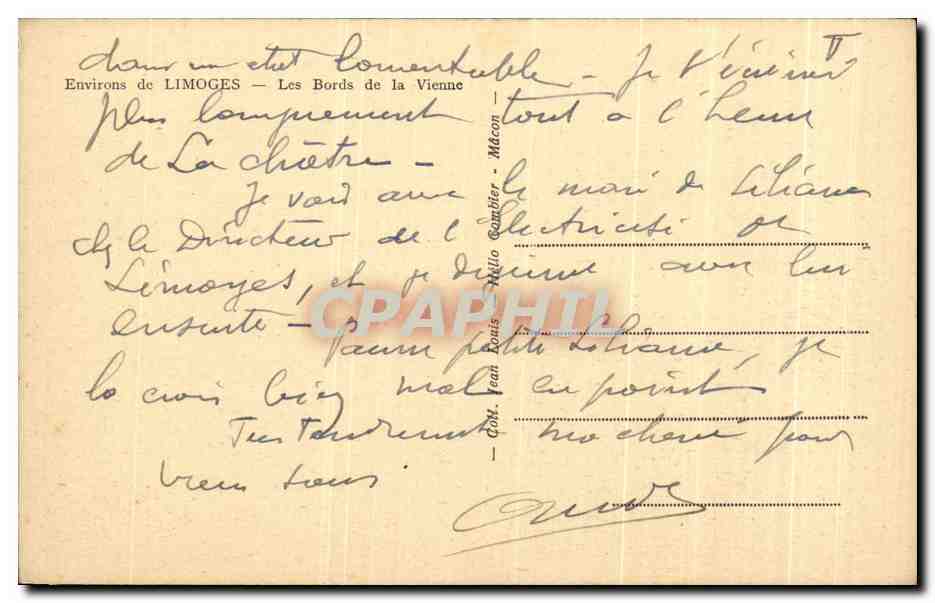 II
dans un état lamentable - Je t'écrirai
Environs de LIMOGES — Les Bords de la Vienne
plus longuement tout à l'heure
de La Châtre -
Je vais avec le mari de Liliane
chez le Directeur de l'Électricité de
Limoges, et je dîne avec lui
ensuite - Pauvre petite Liliane, je
la crois bien mal en point
Très tendrement ma chérie pour
vous tous
André
— Coll. Jean Louis — Hélio Combier - Mâcon —
CPAPHIL